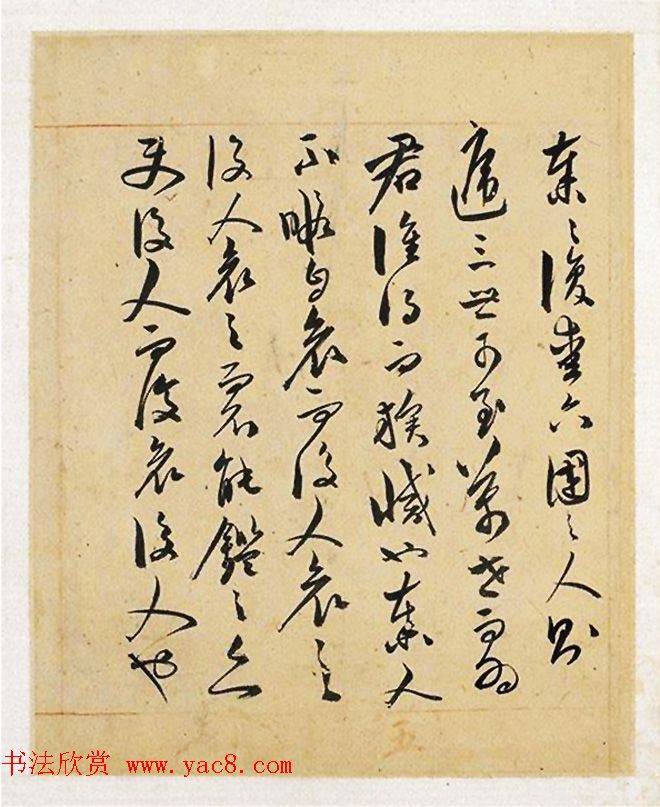 秦之復愛六國之人則
遞三世可至萬世而為
君誰得而族滅也秦人
不暇自哀而後人哀之
後人哀之而不能鑑之亦
使後人而復哀後人也
五
书法欣赏 www.yac8.com